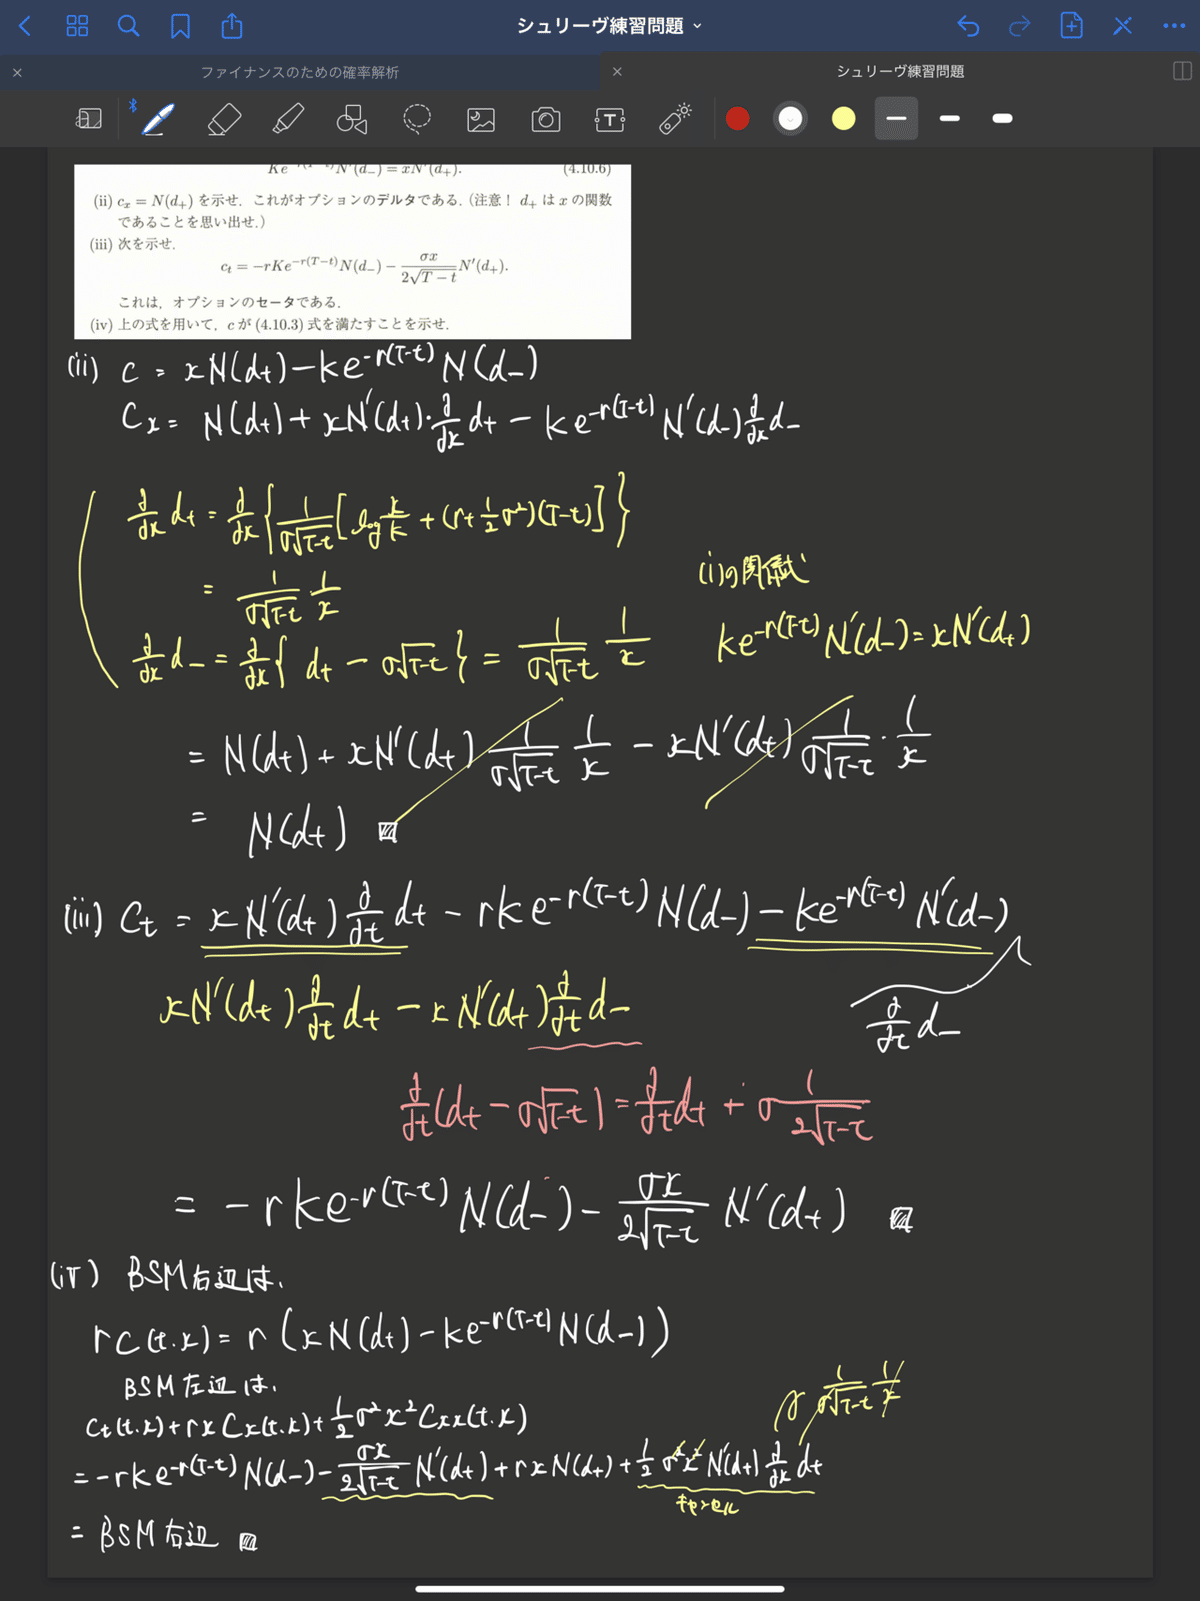 シュリーヴ練習問題
ファイナンスのための確率解析
シュリーヴ練習問題
Ke^{-r(T-t)}N'(d_-) = xN'(d_+). (4.10.6)
(ii) c_x = N(d_+) を示せ. これがオプションのデルタである. (注意! d_+ は x の関数
であることを思い出せ.)
(iii) 次を示せ.
c_t = -rKe^{-r(T-t)}N(d_-) - \frac{σx}{2\sqrt{T-t}}N'(d_+).
これは, オプションのセータである.
(iv) 上の式を用いて, c が (4.10.3) 式を満たすことを示せ.
(ii) C = xN(d_+) - Ke^{-r(T-t)} N(d_-)
C_x = N(d_+) + xN'(d_+)・\frac{∂}{∂x}d_+ - Ke^{-r(T-t)} N'(d_-)\frac{∂}{∂x}d_-
\frac{∂}{∂x}d_+ = \frac{∂}{∂x}{\frac{1}{σ\sqrt{T-t}}[log\frac{x}{K} + (r+\frac{1}{2}σ^2)(T-t)]}
= \frac{1}{σ\sqrt{T-t}}・\frac{1}{x}
(i)の関係式
\frac{∂}{∂x}d_- = \frac{∂}{∂x}{d_+ - σ\sqrt{T-t}} = \frac{1}{σ\sqrt{T-t}} \frac{1}{x}
Ke^{-r(T-t)} N'(d_-) = xN'(d_+)
= N(d_+) + xN'(d_+) \frac{1}{σ\sqrt{T-t}} \frac{1}{x} - xN'(d_+) \frac{1}{σ\sqrt{T-t}}・\frac{1}{x}
= N(d_+)
(iii) C_t = xN'(d_+)\frac{∂}{∂t}d_+ - rKe^{-r(T-t)} N(d_-) - Ke^{-r(T-t)} N'(d_-)
\frac{∂}{∂t}d_-
xN'(d_+)\frac{∂}{∂t}d_+ - xN'(d_+)\frac{∂}{∂t}d_-
\frac{∂}{∂t}(d_+ - σ\sqrt{T-t}) = \frac{∂}{∂t}d_+ + σ\frac{1}{2\sqrt{T-t}}
= -rKe^{-r(T-t)} N(d_-) - \frac{σx}{2\sqrt{T-t}} N'(d_+)
(iv) BSM右辺は、
rC(t.x) = r(xN(d_+) - Ke^{-r(T-t)} N(d_-))
BSM左辺は、
C_t(t.x) + rxC_x(t.x) + \frac{1}{2}σ^2x^2C_{xx}(t.x)
\frac{1}{σ\sqrt{T-t}} \frac{1}{x}
= -rKe^{-r(T-t)} N(d_-) - \frac{σx}{2\sqrt{T-t}} N'(d_+) + rxN(d_+) + \frac{1}{2}σ^2x^2N'(d_+)\frac{∂}{∂x}d_+
キャンセル
= BSM右辺